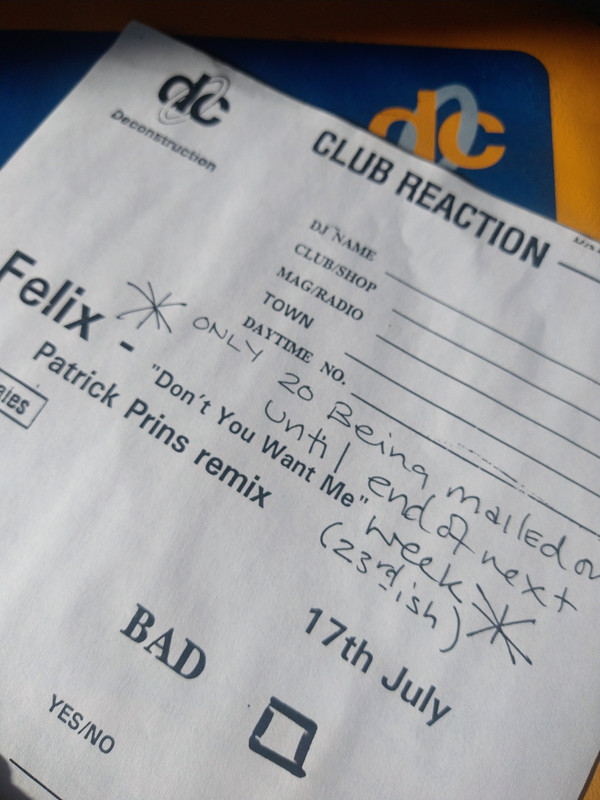 dc
Deconstruction
dc
CLUB REACTION
DJ NAME
CLUB/SHOP
MAG/RADIO
TOWN
DAYTIME NO.
Felix -
* ONLY 20 Being mailed
until end of next
week *
(23rd ish)
"Don't You Want Me"
Patrick Prins remix
17th July
BAD
YES/NO